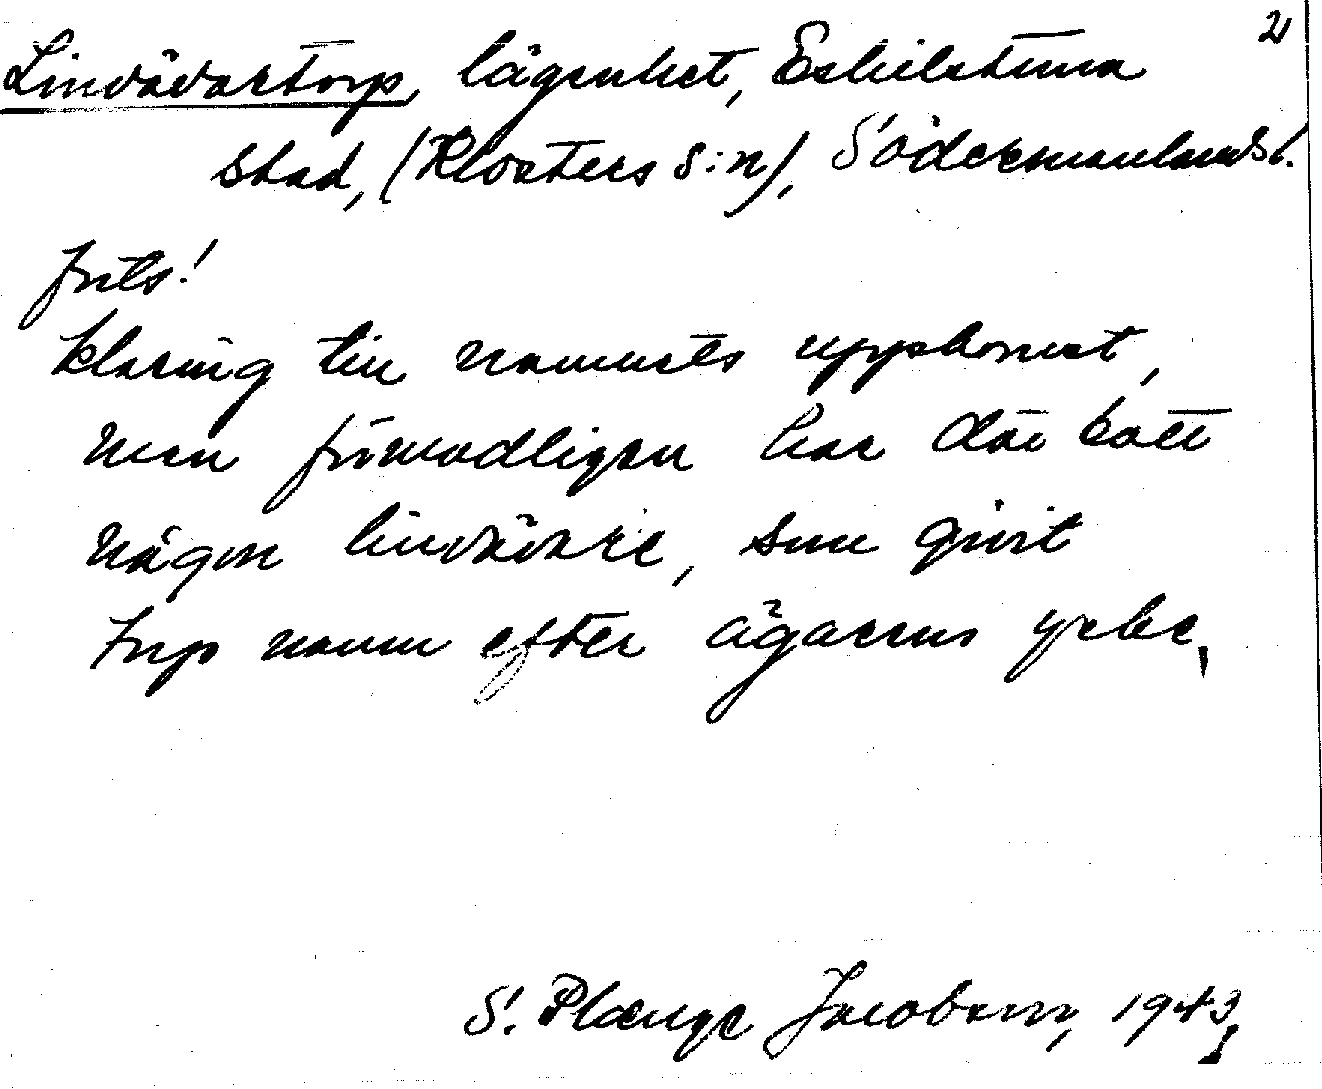 2
Linvävartorp, lägenhet, Eskilstuna
stad, (Klosters s:n), Södermanlands l.
Forts!
klaring till namnets uppkomst,
men förmodligen har där bott
någon linvävare, som givit
torp namn efter ägarens yrke.
S. Plænge Jacobson, 1943.